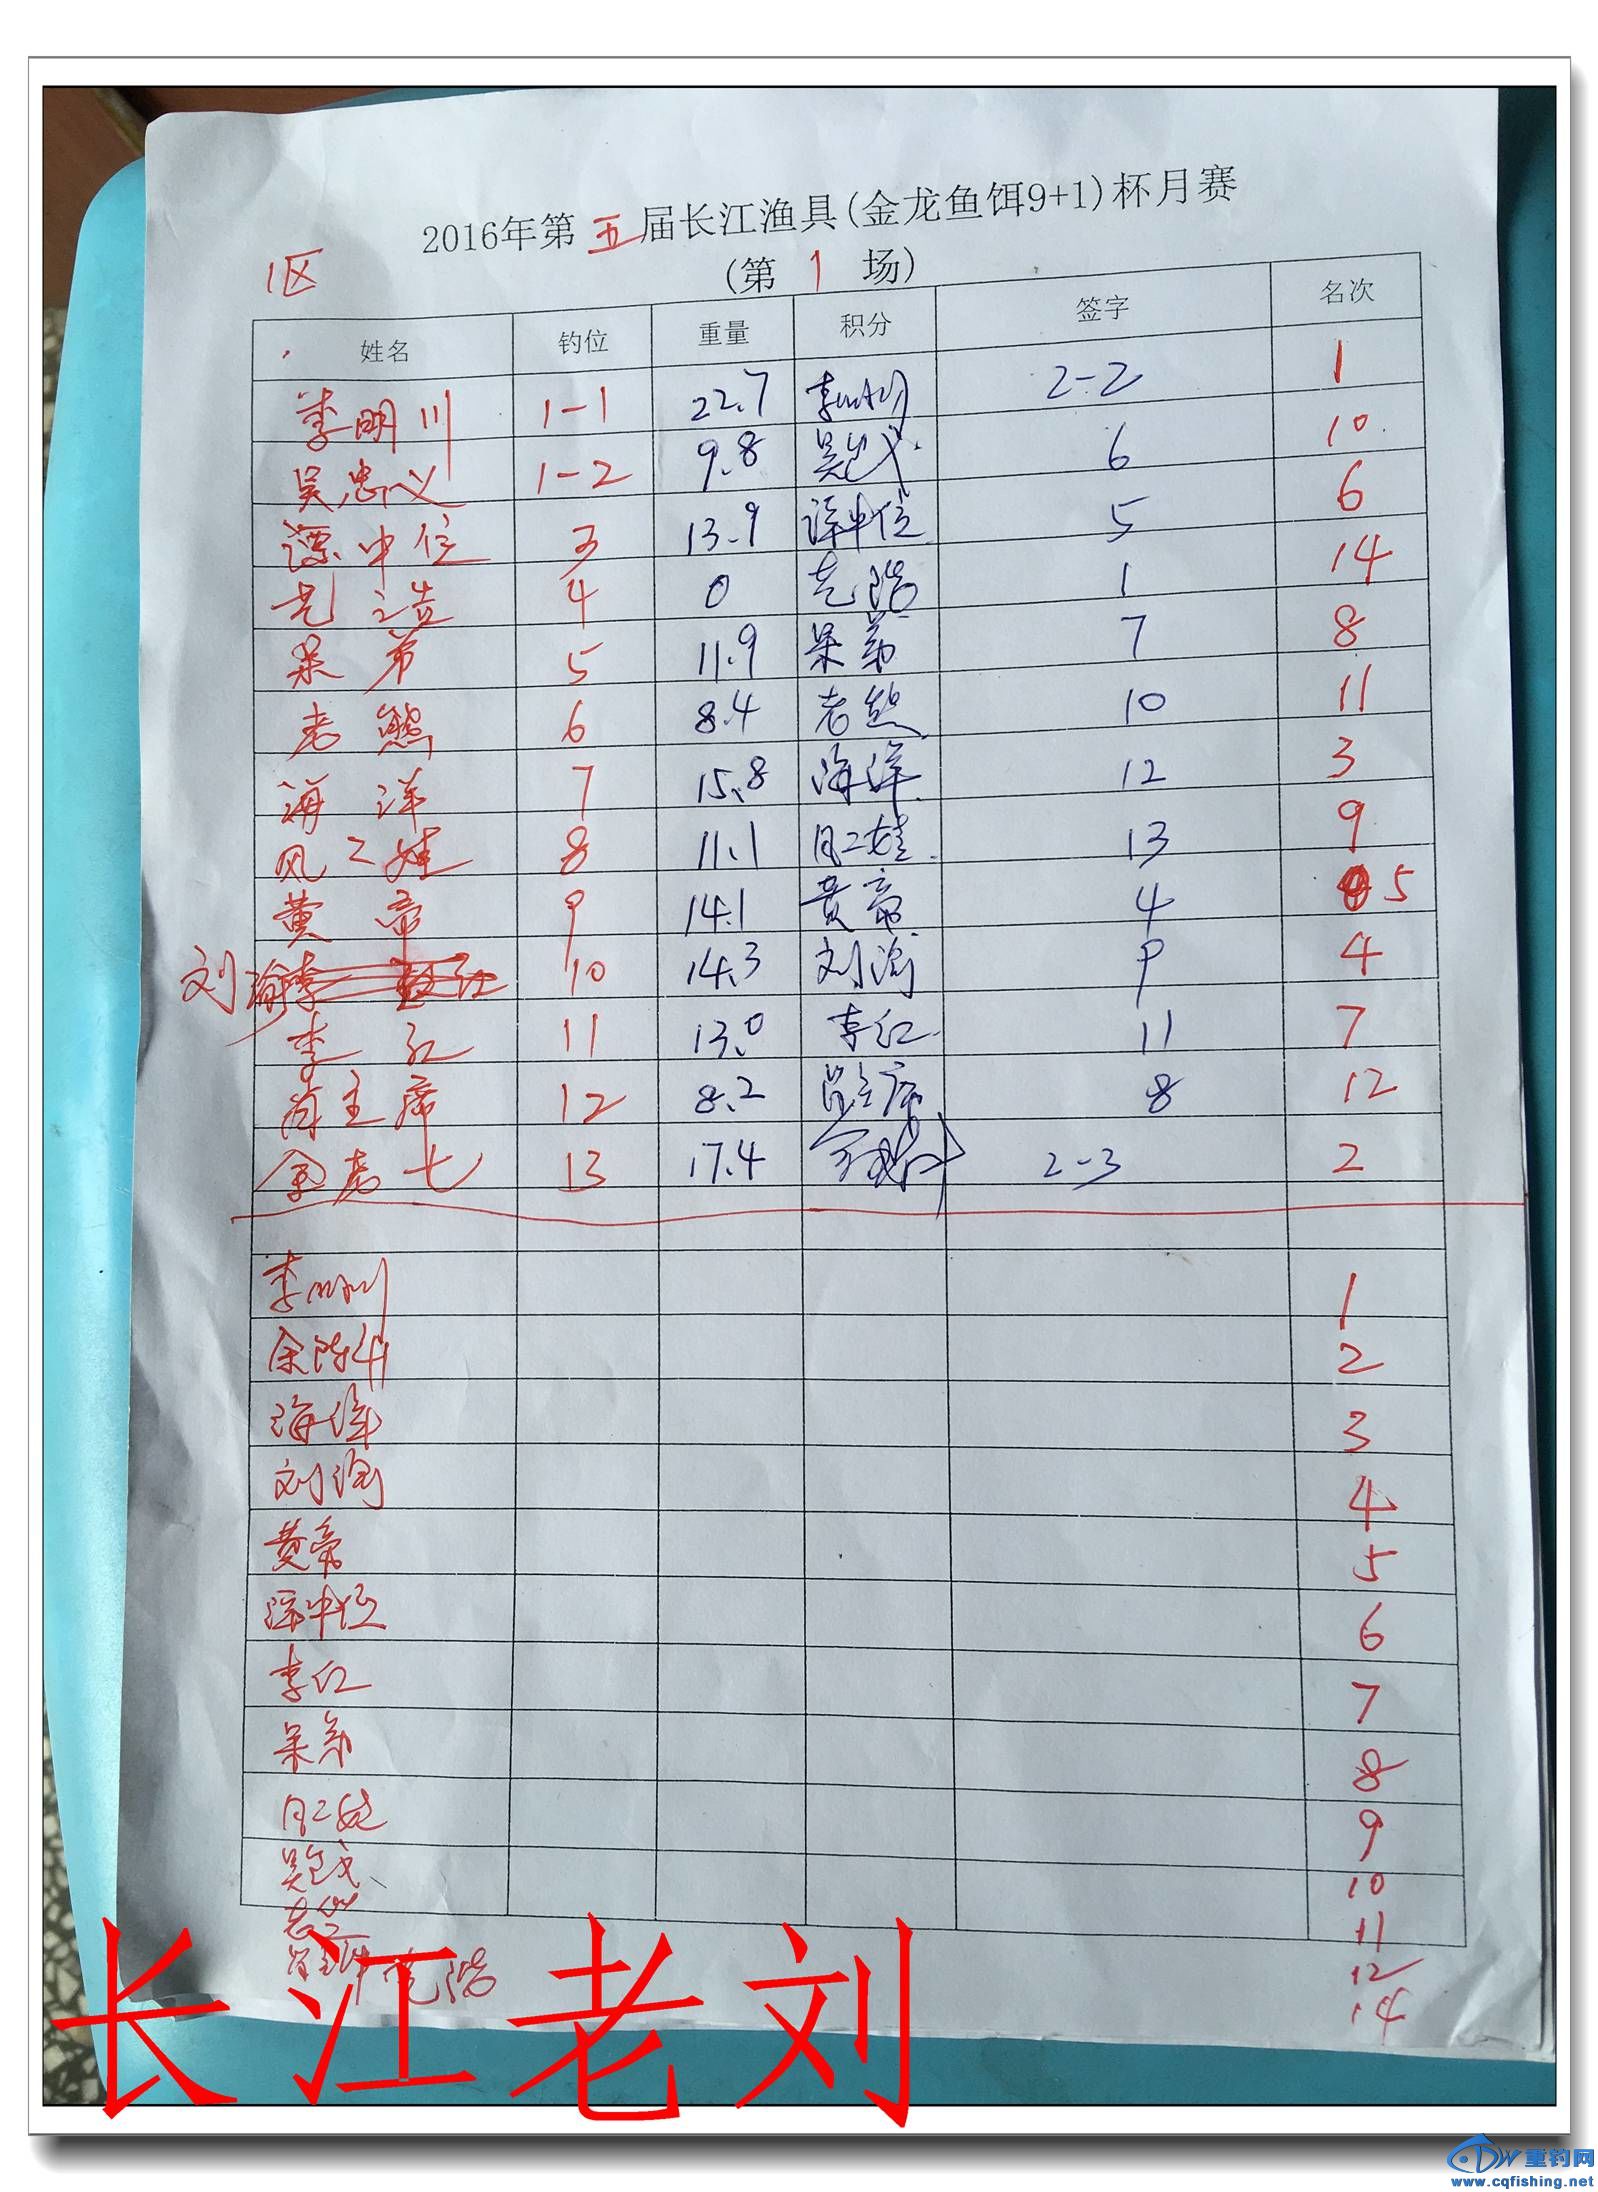 2016年第五届长江渔具(金龙鱼饵9+1)杯月赛
1区
(第 1 场)
姓名 钓位 重量 积分 签字 名次
李明川 1-1 22.7 李明川 2-2 1
吴忠义 1-2 9.8 6 10
漂中位 3 13.9 漂中位 5 6
4 0 1 14
呆弟 5 11.9 呆弟 7 8
老熊 6 8.4 老熊 10 11
海洋 7 15.8 海洋 12 3
二娃 8 11.1 二娃 13 9
黄帝 9 14.1 黄帝 4 5
刘渝 10 14.3 刘渝 9 4
李红 11 13.0 李红 11 7
肖主席 12 8.2 肖主席 8 12
13 17.4 2-3 2
李明川 1
2
海洋 3
刘渝 4
黄帝 5
漂中位 6
李红 7
呆弟 8
二娃 9
10
11
12
14
长江老刘
重钓网
www.cqfishing.net